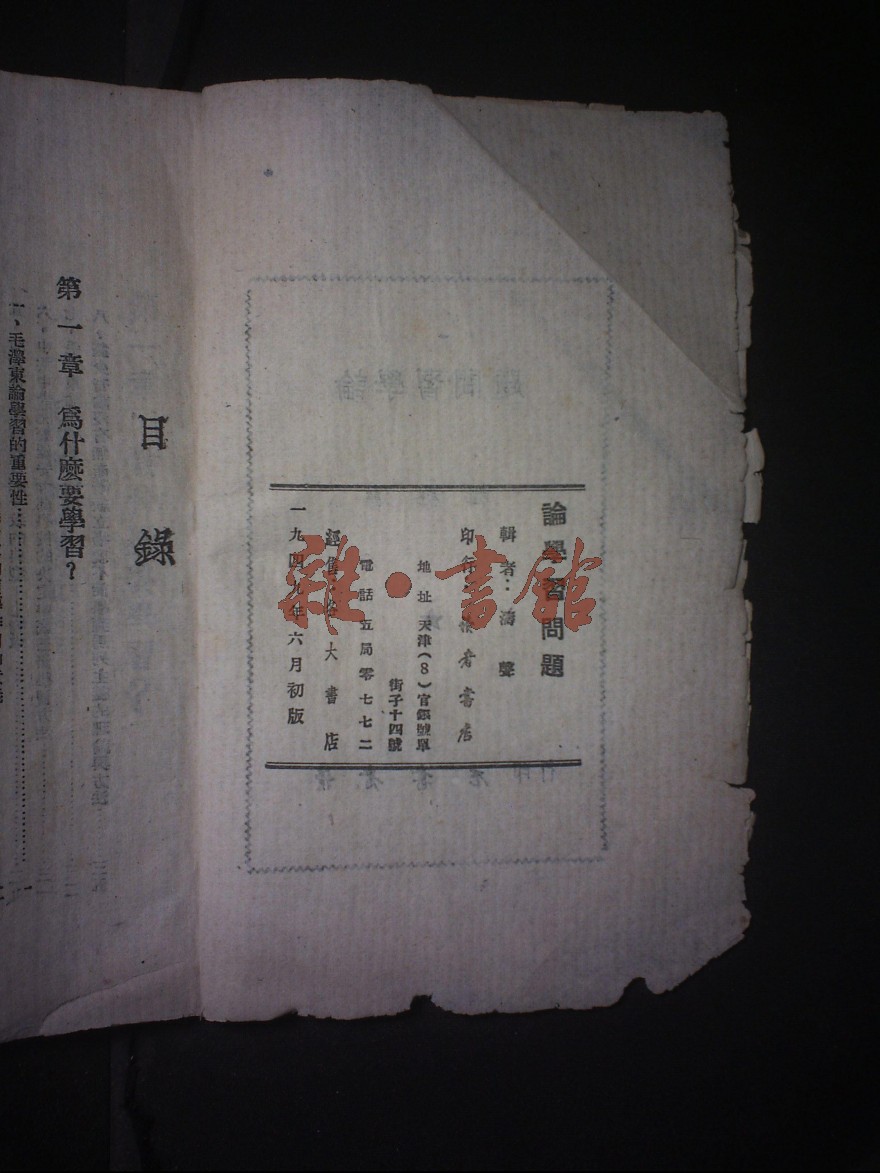 論學習問題
輯者：濤聲
印行：讀者書店
地址 天津（8）官銀號單
街子十四號
電話五局零七七二
經售：各大書店
一九四九年六月初版
雜·書館
目錄
第一章 爲什麽要學習？
一、毛澤東論學習的重要性